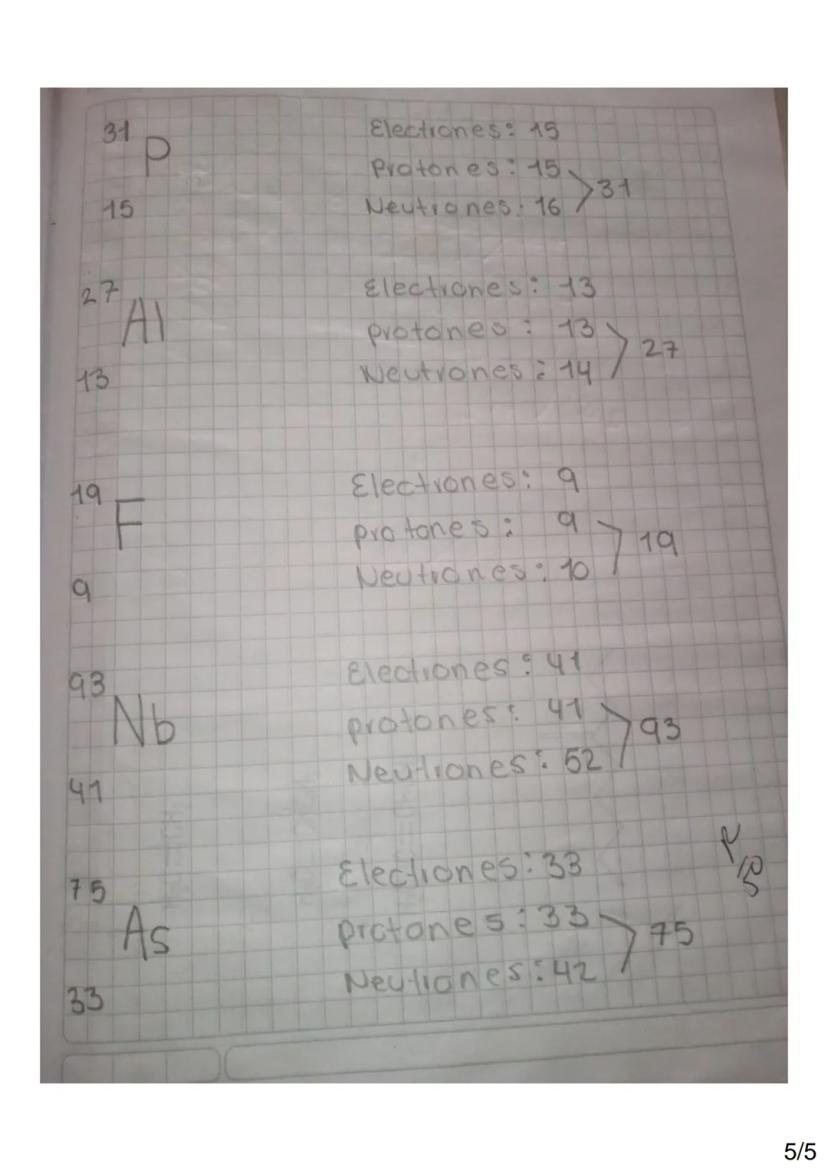 31
P
15
Electrones: 15
Protones: 15
31
Neutrones: 16
27
Al
13
Electrones: 13
protones: 13
27
Neutrones: 14
19
F
9
Electrones: 9
protones: 9
19
Neutrones: 10
93
Nb
41
Electrones: 41
protones: 41
93
Neutrones: 52
75
As
33
Electrones: 33
protones: 33
75
Neutrones: 42
5/5